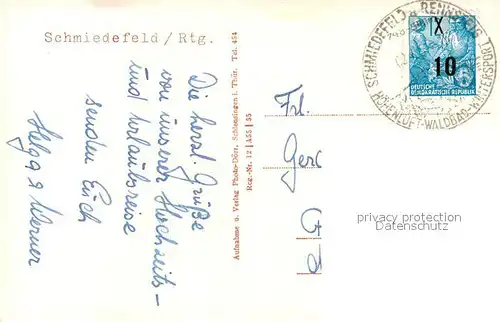 Schmiedefeld / Rtg.
Die herzl. Grüße
von unserer Hochzeits-
und Urlaubsreise
senden Euch
Helga & Werner
Aufnahme u. Verlag Photo-Dörr, Schleusingen i. Thür. Tel. 454
Reg.-Nr. 12 | A55 | 55
SCHMIEDEFELD a. RENNSTEIG
HÖHENLUFT-WALDBAD-WINTERSPORT
X
10
DEUTSCHE
DEMOKRATISCHE REPUBLIK
Frl.
Ger
G
privacy protection
Datenschutz